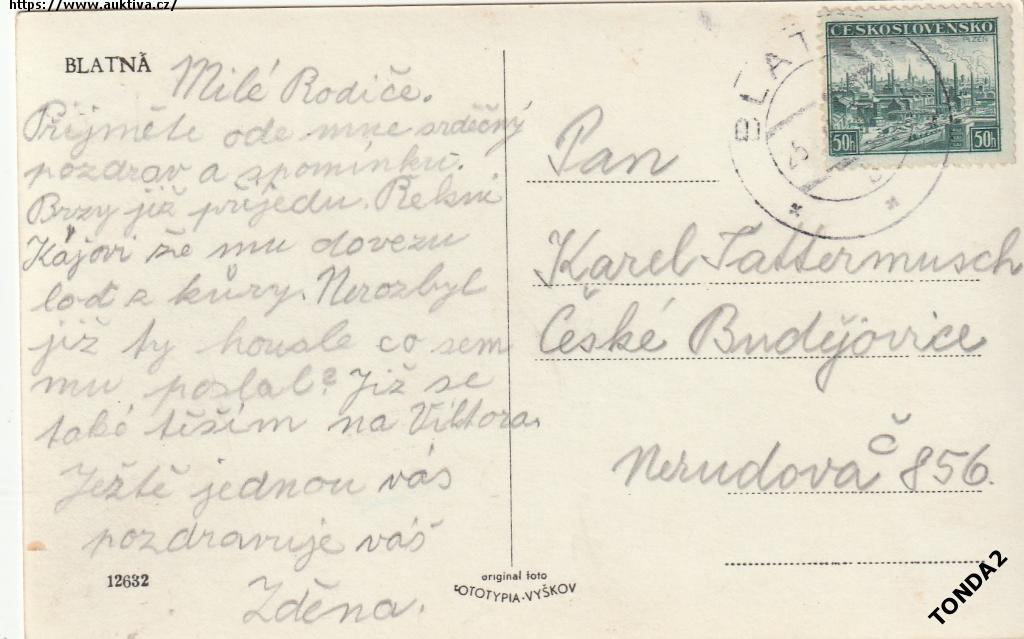 https://www.auktiva.cz/
BLATNÁ
Milé Rodiče.
Přijměte ode mne srdečný
pozdrav a spomínku.
Brzy již přijedu. Řekni
Kájovi že mu dovezu
loď z kůry. Nerozbyl
již ty housle co sem
mu poslal? Již se
také těším na Viktora.
Ježtě jednou vás
pozdravuje váš
Zděna.
12632
original foto
FOTOTYPIA-VYŠKOV
BLAT
25
ČESKOSLOVENSKO
PLZEŇ
50h
50h
Pan
Karel Tattermusch
České Budějovice
Nerudova č 856.
TONDA2